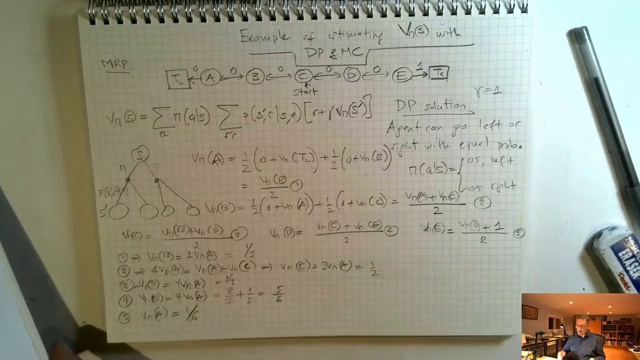 Example of estimating Vπ(s) with
DP & MC
MRP
TL 0 A 0 B 0 C 0 D 0 E 1 TR
start
Vπ(s) = Σa π(a|s) Σs',r p(s',r|s,a) [r+γVπ(s')]
DP solution γ=1
Agent can go left or
right with equal prob.
π(a|s) = { 0.5, left
0.5 right
(S)
π
s'
Vπ(A) = 1/2 (0+Vπ(TL)) + 1/2 (0+Vπ(B))
= Vπ(B)/2 ①
Vπ(B) = 1/2 (0+Vπ(A)) + 1/2 (0+Vπ(C)) = (Vπ(A)+Vπ(C))/2 ②
Vπ(C) = (Vπ(B)+Vπ(D))/2 ③ Vπ(D) = (Vπ(C)+Vπ(E))/2 ④ Vπ(E) = (Vπ(D)+1)/2 ⑤
① ⇒ Vπ(B) = 2Vπ(A) = 1/3
② ⇒ 4Vπ(A) = Vπ(A)+Vπ(C) ⇒ Vπ(C) = 3Vπ(A) = 1/2
Vπ(D) = 4Vπ(A) = 2/3
= 2/3 + 1/2 = 5/6
⑤ Vπ(A) = 1/6
ERASER